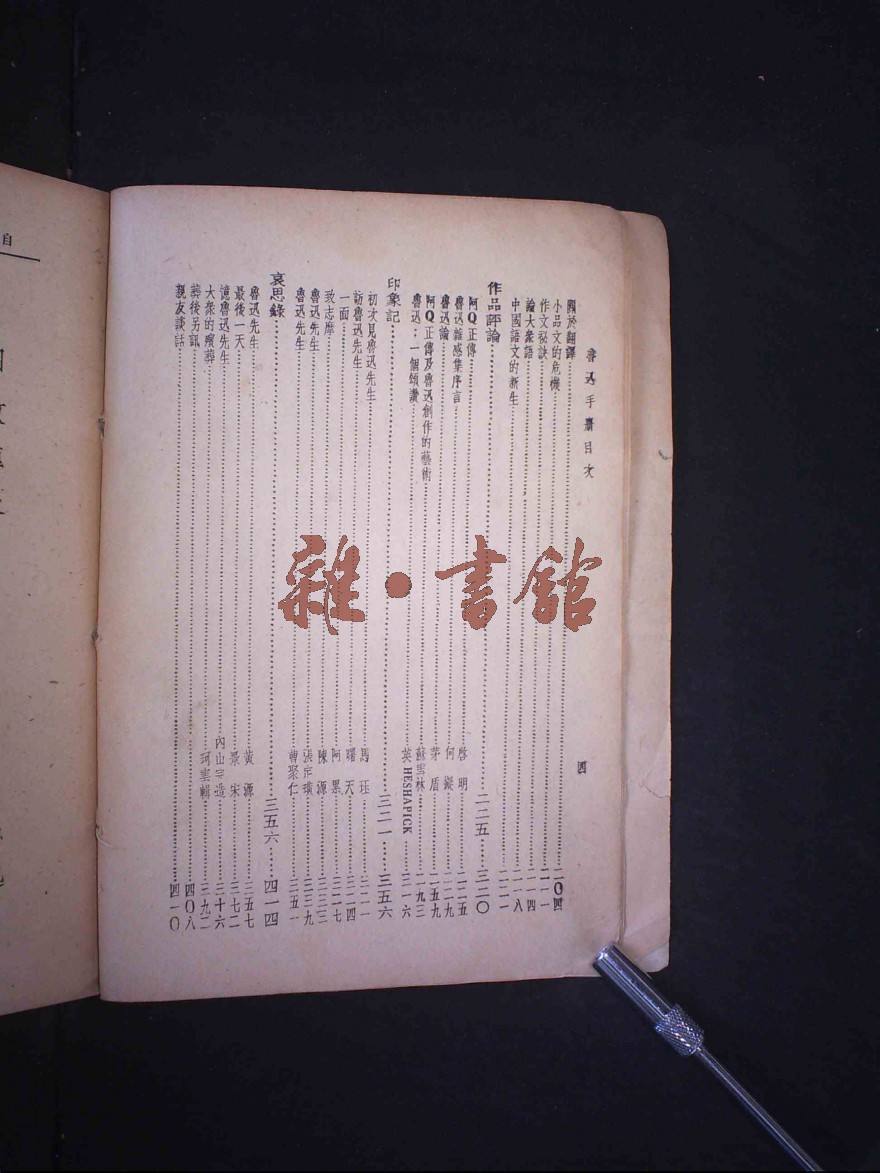 魯迅手册目次
四
關於翻譯……二〇四
小品文的危機
作文秘訣……二一一
論大衆語……二一四
中國語文的新生……二一八
二二一
作品評論……二二五……三二〇
阿Q正傳……啓明……二二五
魯迅雜感集序言……何凝……二二九
魯迅論……茅盾……二五九
阿Q正傳及魯迅創作的藝術……蘇雪林……二九三
魯迅:一個頌讚……英HESHAPICK……三一六
印象記……三二一……三五六
初次見魯迅先生……馬珏……三二一
訪魯迅先生……曙天……三二四
一面……阿累……三二七
致志摩……陳源……三三三
魯迅先生……張定璜……三三九
魯迅先生……曹聚仁……三五一
哀思錄……三五六……四一四
魯迅先生……黃源……三五七
最後一天……景宋……三七二
憶魯迅先生……內山完造……三十六
大衆的殯葬……珂雲輯……三九二
葬後另訊……四〇八
親友談話……四一〇
自
雜·書館